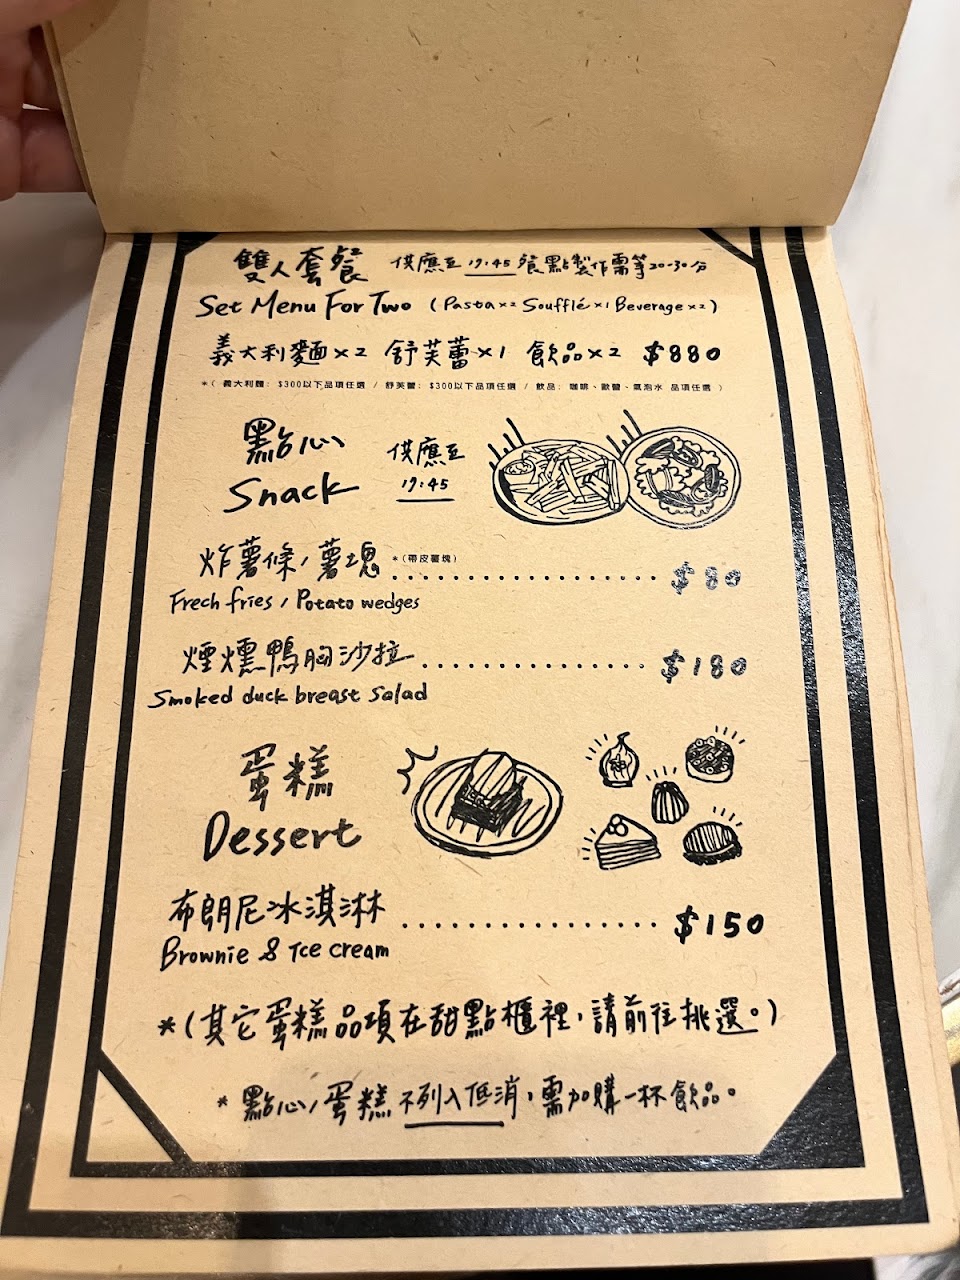 雙人套餐 供應至 19:45 餐點製作需等20-30分
Set Menu For Two (Pasta×2 Soufflé×1 Beverage×2)
義大利麵×2 舒芙蕾×1 飲品×2 $880
*( 義大利麵: $300以下品項任選 / 舒芙蕾: $300以下品項任選 / 飲品: 咖啡、歐蕾、氣泡水 品項任選 )
點心 供應至
Snack 19:45
炸薯條/薯塊 *(帶皮薯塊) $80
Frech fries / Potato wedges
煙燻鴨胸沙拉 $180
Smoked duck breast salad
蛋糕
Dessert
布朗尼冰淇淋 $150
Brownie & Ice cream
*(其它蛋糕品項在甜點櫃裡,請前往挑選。)
* 點心/蛋糕不列入低消,需加購一杯飲品。